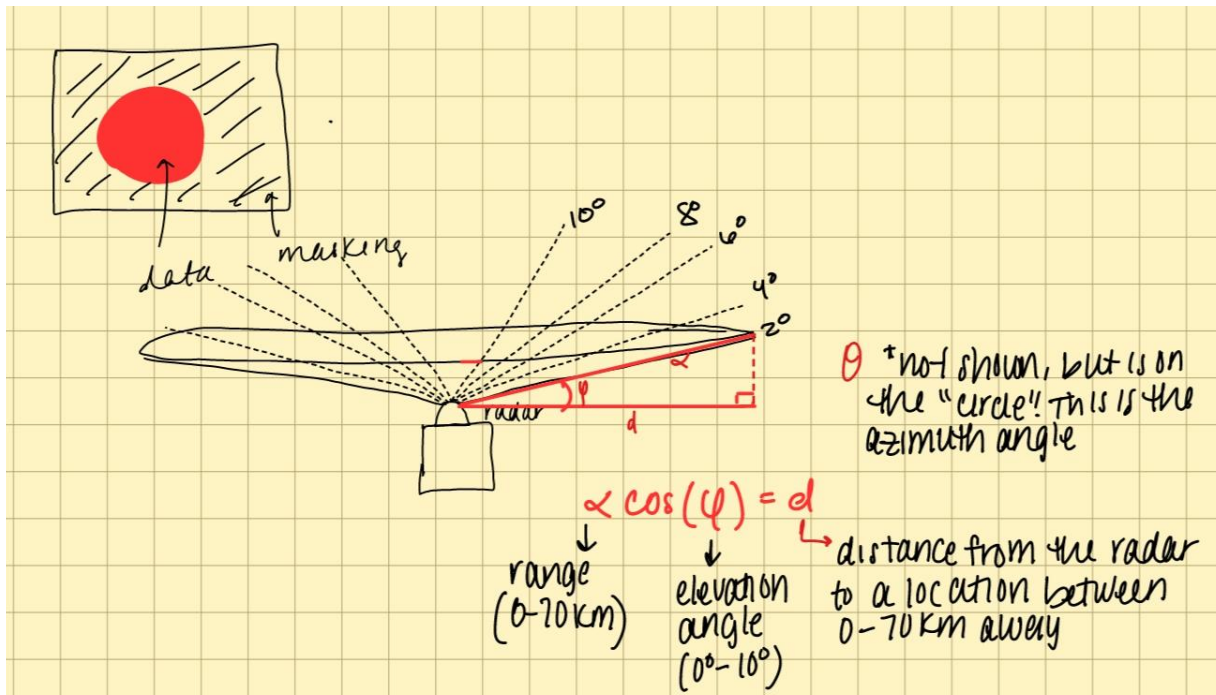 data
masking
10°
8°
6°
4°
2°
α
φ
radar
d
θ *not shown, but is on
the "circle"! This is the
azimuth angle
α cos(φ) = d
range
(0-70km)
elevation
angle
(0°-10°)
distance from the radar
to a location between
0-70km away